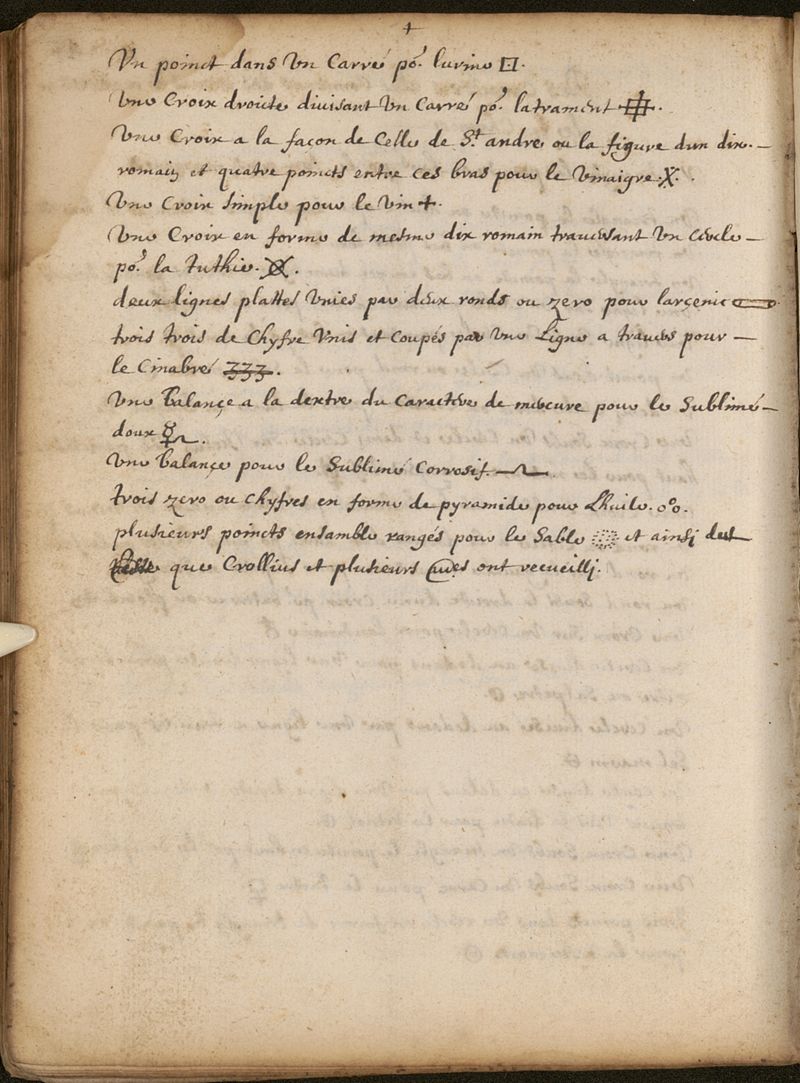 +
Un poinct dans Un Carré po.^r lurine ⊡.
Une Croix droicte diuisant Un Carré po.^r latrament ⌗.
Une Croix a la façon de Celle de S.^t andre ou la figure dun dix. —
romain et quatre poincts entre ces bras pour le Vinaigre. X .
Une Croix simple pour le Vin +.
Une Croix en forme de mesme dix romain trauersant Un cercle —
po.^r la tuthie. .
deux lignes plattes Vnies par deux ronds ou zero pour larçenic .
trois trois de Chyfre Vnis et Coupés par Une Ligne a trauers pour —
le Cinabre 333 .
Une Balançe a la dextre du Caractere de mercure pour le Sublimé —
doux .
Une Balançe pour le Sublimé Corrosif. .
trois zero ou Chyfres en forme de pyramide pour Lhuile. o°o.
plusieurs poincts ensamble rangés pour le Sable et ainsj du
que Crollius et plusieurs ont recueillj.